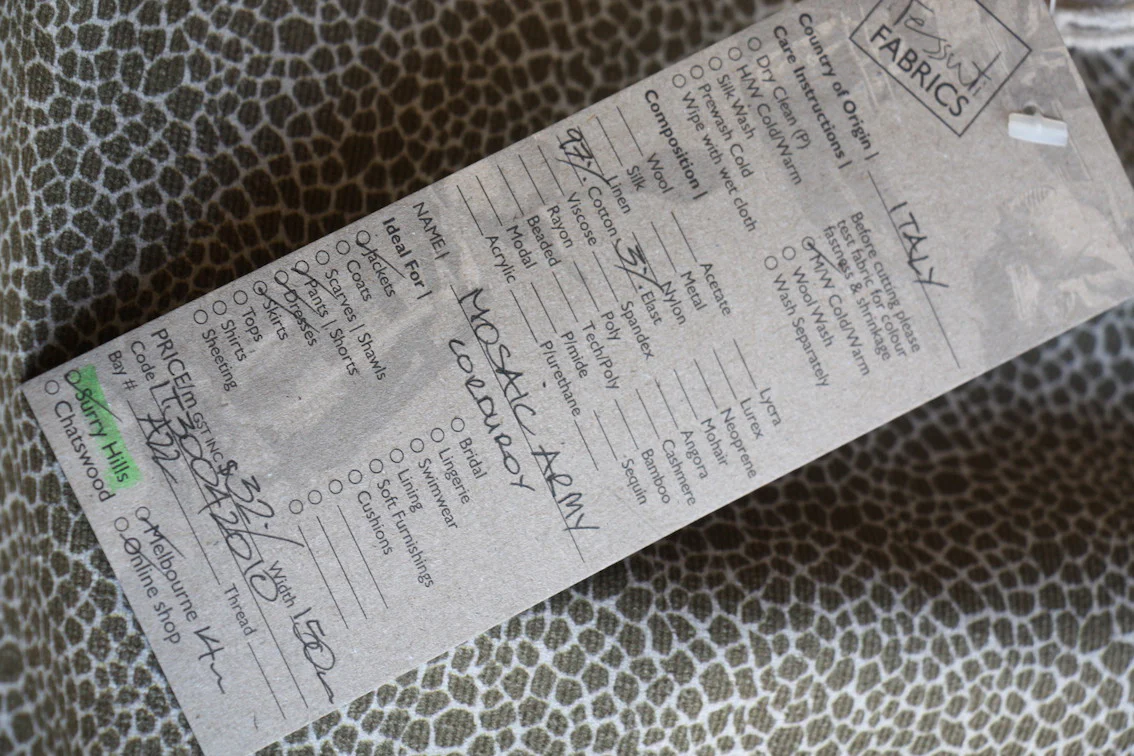 Tessuti
FABRICS
Country of Origin | ITALY
Care Instructions |
Before cutting please
test fabric for colour
fastness & shrinkage
Dry Clean (P)
H/W Cold/Warm
Silk Wash
Prewash Cold
Wipe with wet cloth
M/W Cold/Warm
Wool Wash
Wash Separately
Composition |
Wool
Silk
Linen
97% Cotton
Viscose
Rayon
Beaded
Modal
Acrylic
Acetate
Metal
Nylon
3% Elast
Spandex
Poly
Tech/Poly
P/mide
P/urethane
Lycra
Lurex
Neoprene
Mohair
Angora
Cashmere
Bamboo
Sequin
NAME | MOSAIC ARMY
CORDUROY
Ideal For |
Jackets
Coats
Scarves | Shawls
Pants | Shorts
Dresses
Skirts
Tops
Shirts
Sheeting
Bridal
Lingerie
Swimwear
Lining
Soft Furnishings
Cushions
PRICE/m GST INC $ 32./ Width 150
Code
Thread
Bay # A22
Surry Hills
Chatswood
Melbourne
Online shop